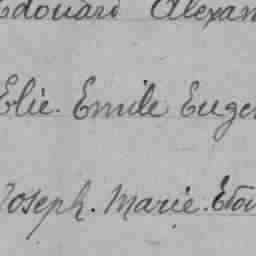 Edouard Alexan
Elie. Emile Eugen
Joseph. Marie. Etou